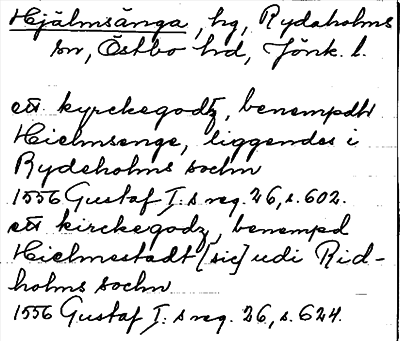 Hjälmsänga, hg, Rydaholms
sn, Östbo hd, Jönk. l.
ett kyrckegodtz, benempdt
Hielmsenge, liggendes i
Rydeholms sochn
1556 Gustaf I:s reg. 26, s. 602.
ett kirckegodz, benempd
Hielmestadt [sic] udi Rid-
holms sochn
1556 Gustaf I:s reg. 26, s. 624.